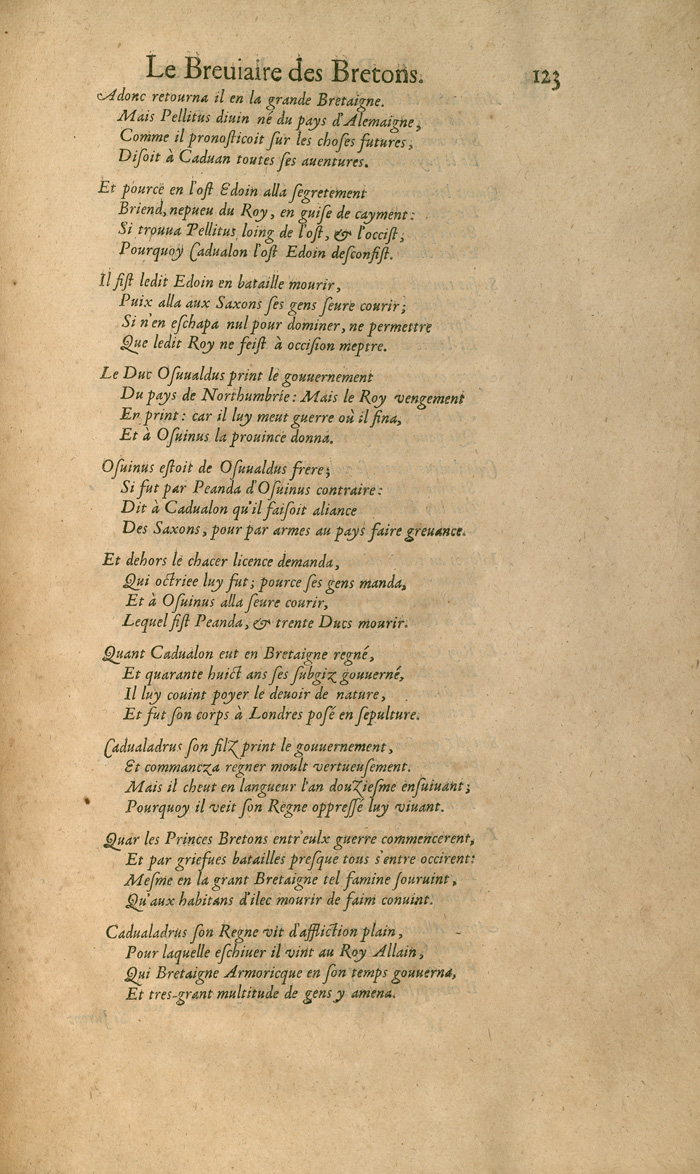 Le Breuiaire des Bretons. 123
Adonc retourna il en la grande Bretaigne.
Mais Pellitus diuin né du pays d'Alemaigne,
Comme il pronoſticoit ſur les choſes futures,
Diſoit à Caduan toutes ſes auentures.
Et pource en l'oſt Edoin alla ſegretement
Briend, nepueu du Roy, en guiſe de cayment:
Si trouua Pellitus loing de l'oſt, & l'occiſt;
Pourquoy Cadualon l'oſt Edoin desconfiſt.
Il fiſt ledit Edoin en bataille mourir,
Puix alla aux Saxons ſes gens ſeure courir;
Si n'en eſchapa nul pour dominer, ne permettre
Que ledit Roy ne feiſt à occiſion meptre.
Le Duc Oſuualdus print le gouuernement
Du pays de Northumbrie: Mais le Roy vengement
En print: car il luy meut guerre où il fina,
Et à Oſuinus la prouince donna.
Oſuinus eſtoit de Oſuualdus frere;
Si fut par Peanda d'Oſuinus contraire:
Dit à Cadualon qu'il faiſoit aliance
Des Saxons, pour par armes au pays faire greuance.
Et dehors le chacer licence demanda,
Qui octriee luy fut; pource ſes gens manda,
Et à Oſuinus alla ſeure courir,
Lequel fiſt Peanda, & trente Ducs mourir.
Quant Cadualon eut en Bretaigne regné,
Et quarante huict ans ſes ſubgiz gouuerné,
Il luy couint poyer le deuoir de nature,
Et fut ſon corps à Londres poſé en ſepulture.
Cadualadrus ſon filz print le gouuernement,
Et commancza regner moult vertueuſement.
Mais il cheut en langueur l'an douzieſme enſuiuant;
Pourquoy il veit ſon Regne oppreſſé luy viuant.
Quar les Princes Bretons entr'eulx guerre commencerent,
Et par griefues batailles preſque tous s'entre occirent:
Meſme en la grant Bretaigne tel famine ſouruint,
Qu'aux habitans d'ilec mourir de faim conuint.
Cadualadrus ſon Regne vit d'affliction plain,
Pour laquelle eſchiuer il vint au Roy Allain,
Qui Bretaigne Armoricque en ſon temps gouuerna,
Et tres-grant multitude de gens y amena.